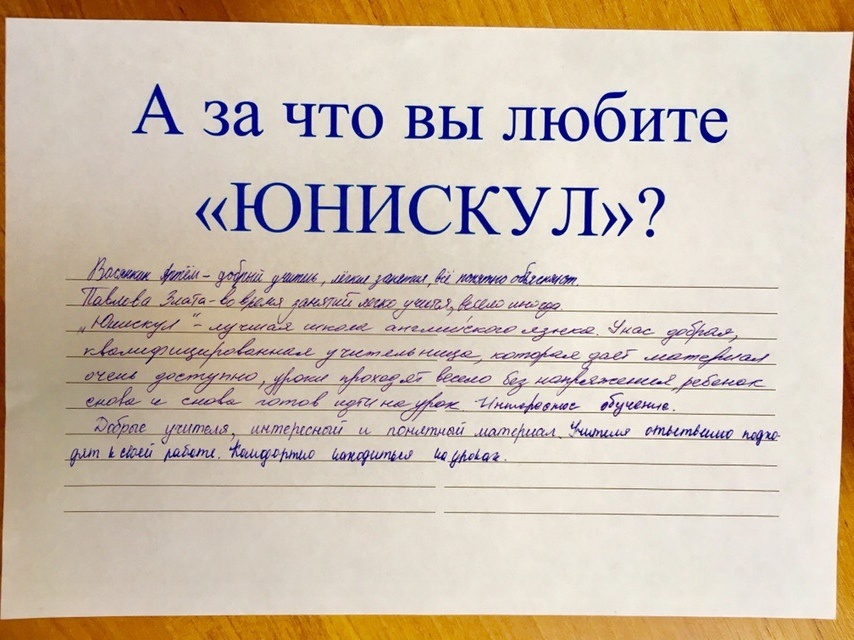 А за что вы любите
«ЮНИСКУЛ»?
Артём - добрый учитель, лёгкие занятия, всё понятно объясняют.
Павлева Злата - во время занятий легко учится, весело иногда.
„Юнискул" - лучшая школа английского языка. У нас добрая,
квалифицированная учительница, которая даёт материал
очень доступно, уроки проходят весело без напряжения, ребенок
снова и снова готов идти на урок. Интересное обучение.
Добрые учителя, интересный и понятный материал. Учителя отвественно подхо-
дят к своей работе. Комфортно находиться на уроках.